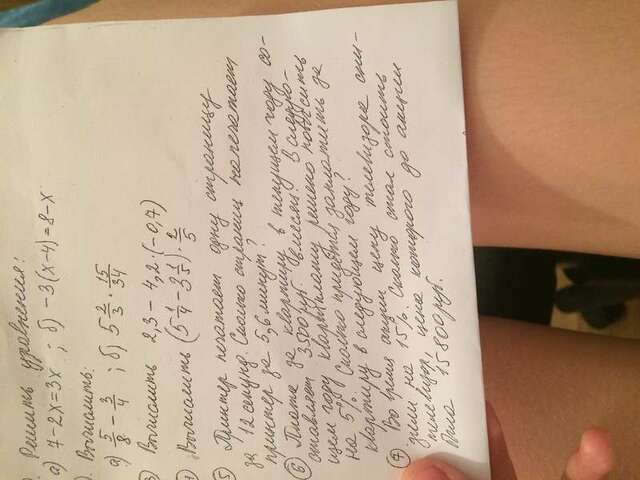 ). Решить уравнения:
а) 7-2x=3x ; б) -3(x-4)=8-x
). Вычислить:
а) 5/8 - 3/4 ; б) 5 2/3 · 15/34
3 Вычислить 2,3 - 4,2·(-0,7)
4 Вычислить (5 1/4 - 3 1/5) · 2/5
5 Принтер печатает одну страницу
за 12 секунд. Сколько страниц напечатает
принтер за 5,6 минут?
6 Плата за квартиру в текущем году со-
ставляет 3500 руб. в месяц. В следую-
щем году квартплату решено повысить
на 5%. Сколько придется заплатить за
квартиру в следующем году?
7 Во время акции цену телевизора сни-
зили на 15%. Сколько стал стоить
телевизор, цена которого до акции
была 15800 руб.